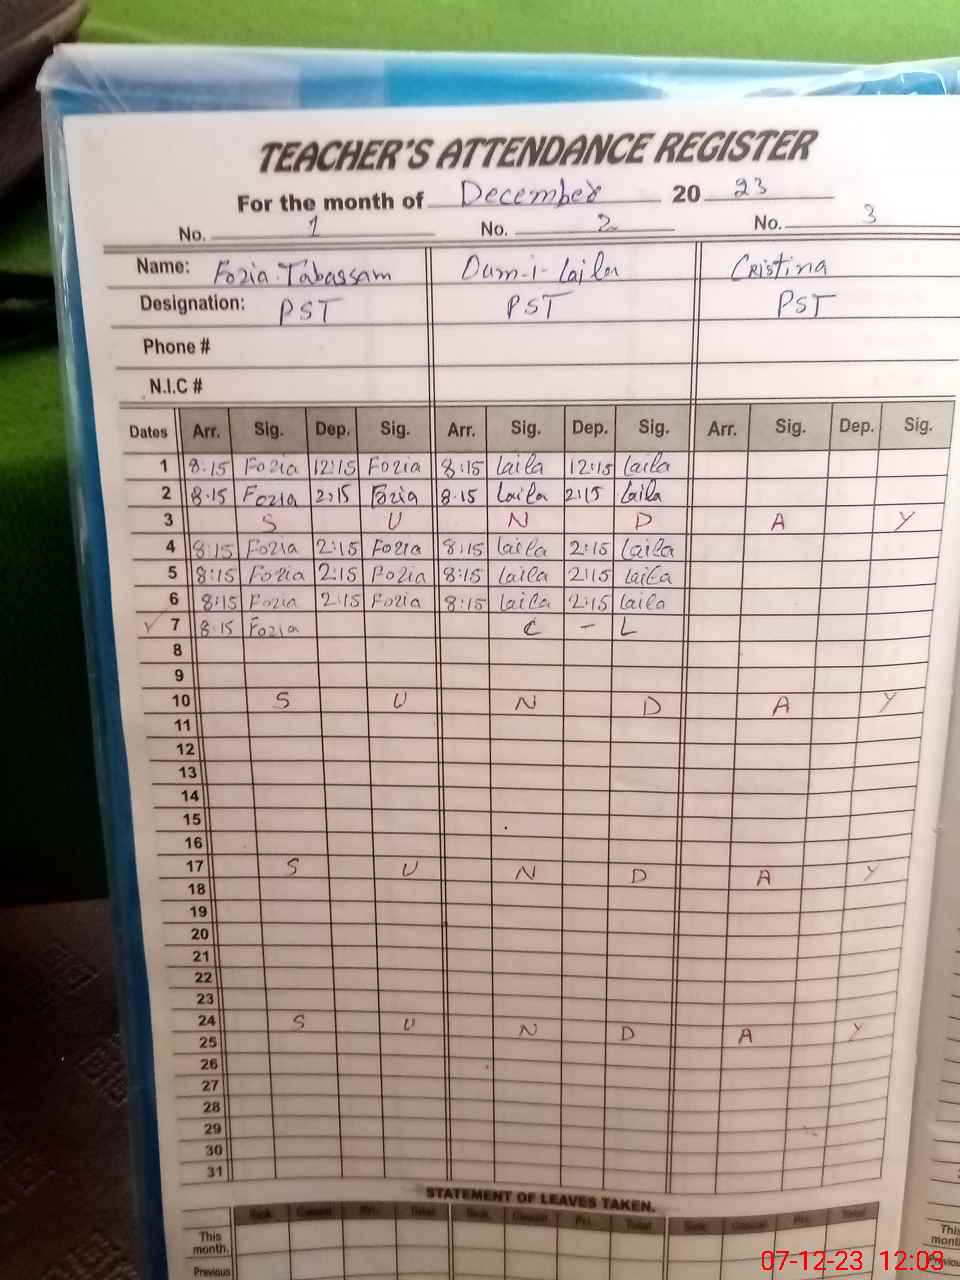 TEACHER'S ATTENDANCE REGISTER
For the month of December 20 23
No. 1 No. 2 No. 3
Name: Fozia Tabassam Oum-i-Laila Cristina
Designation: PST PST PST
Phone #
N.I.C #
Dates Arr. Sig. Dep. Sig. Arr. Sig. Dep. Sig. Arr. Sig. Dep. Sig.
1 8:15 Fozia 12:15 Fozia 8:15 Laila 12:15 Laila
2 8:15 Fozia 2:15 Fozia 8:15 Laila 2:15 Laila
3 S U N D A Y
4 8:15 Fozia 2:15 Fozia 8:15 Laila 2:15 Laila
5 8:15 Fozia 2:15 Fozia 8:15 Laila 2:15 Laila
6 8:15 Fozia 2:15 Fozia 8:15 Laila 2:15 Laila
7 8:15 Fozia C - L
8
9
10 S U N D A Y
11
12
13
14
15
16
17 S U N D A Y
18
19
20
21
22
23
24 S U N D A Y
25
26
27
28
29
30
31
STATEMENT OF LEAVES TAKEN.
Sick Casual Pri. Total Sick Casual Pri. Total Sick Casual Pri. Total
This month. This month
Previous
07-12-23 12:03